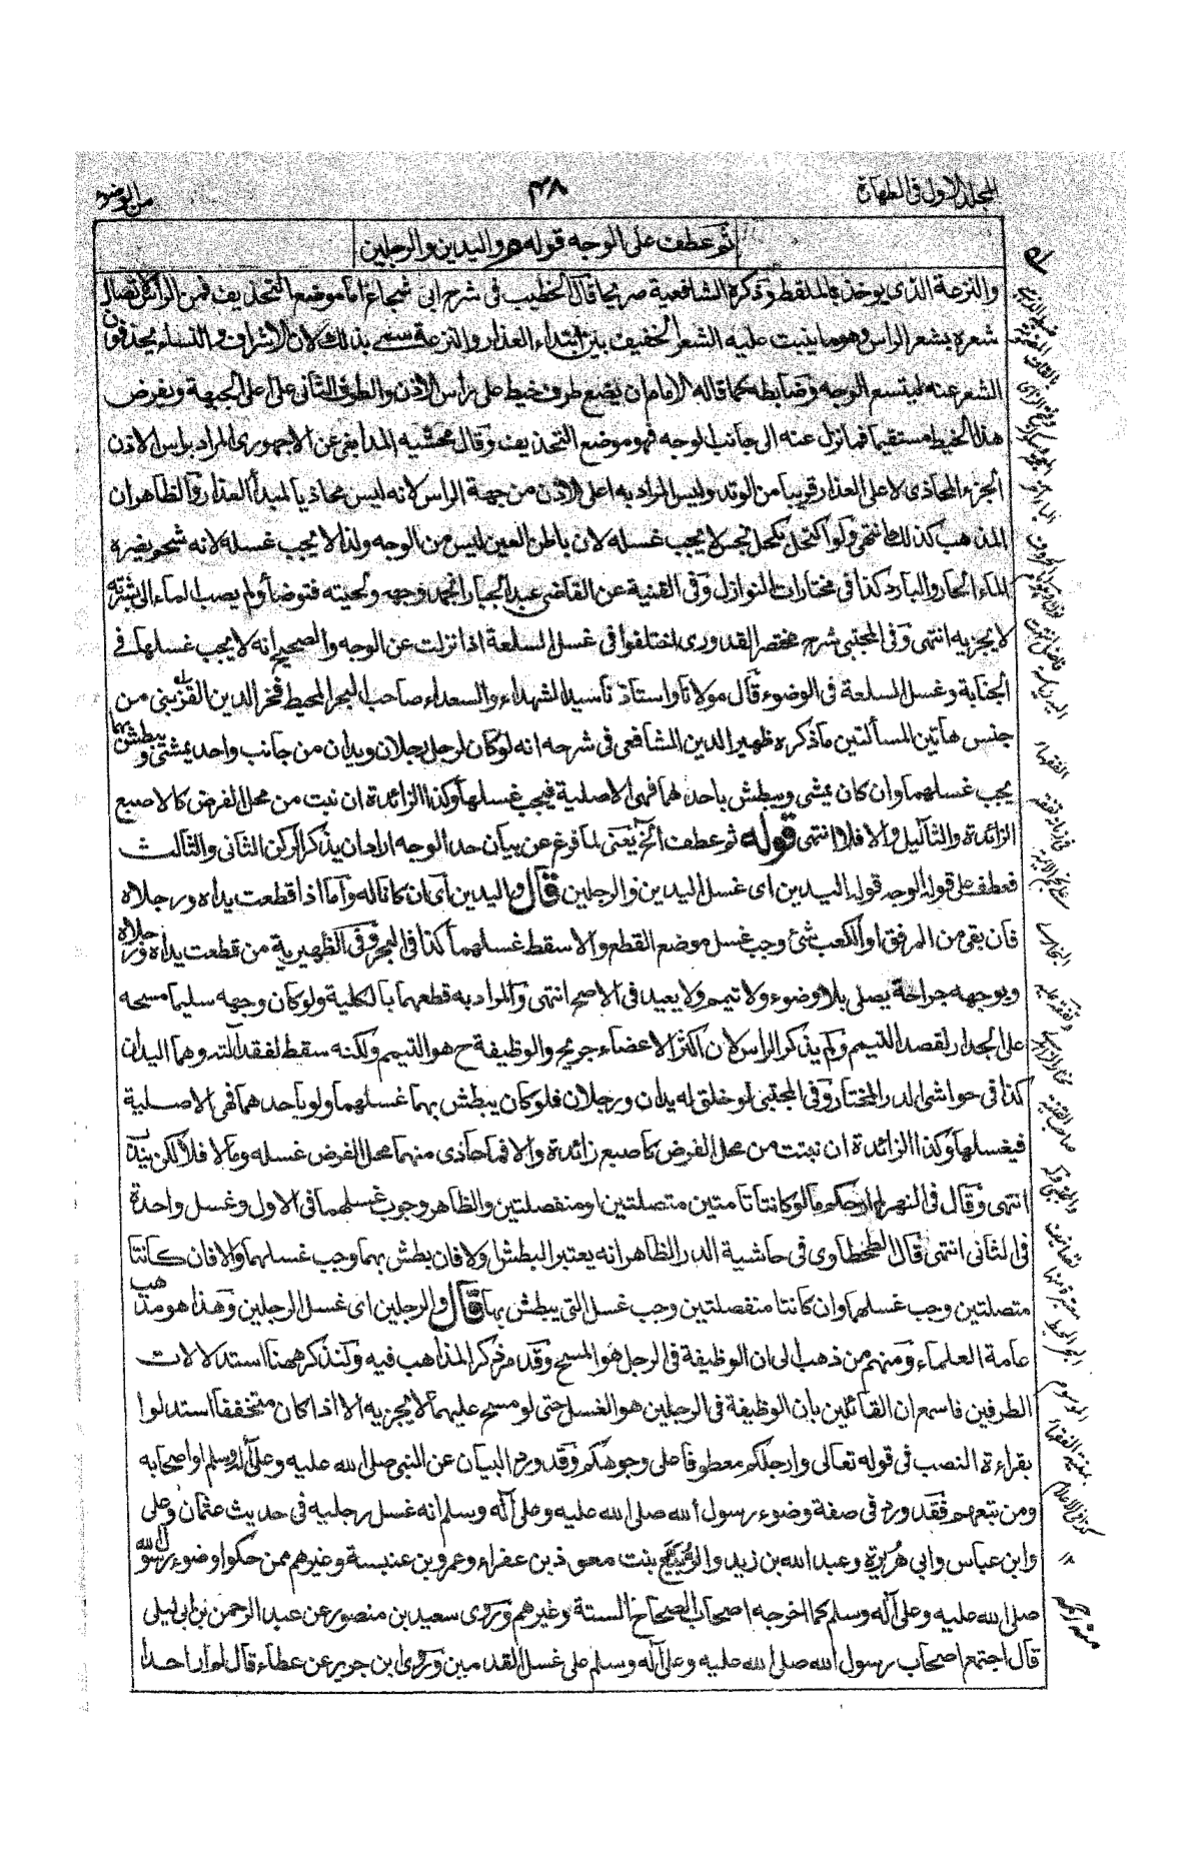 المجلد الاول فى الطهارة
٤٨
من الوضوء
ثم عطف على الوجه قوله واليدين والرجلين
والنزعة الذى يوخذ بالملقط وذكره الشافعية صريحا قال الخطيب فى شرح ابى شجاع اما موضع التحذيف فمن الراس لاتصال
شعره بشعر الراس وهو ما ينبت عليه الشعر الخفيف بين ابتداء العذار والنزعة سمى بذلك لان الاشراف والنساء يحذفون
الشعر عنه ليتسع الوجه وضابطه كما قاله الامام ان يضع طرف خيط على راس الاذن والطرف الثانى على اعلى الجبهة ويفرض
هذا الخيط مستقيما فما نزل عنه الى جانب الوجه فهو موضع التحذيف وقال محشيه المدابغى عن الاجهورى المراد براس الاذن
الجزء المحاذى لاعلى العذار قريبا من الوتد وليس المراد به اعلى الاذن من جهة الراس لانه ليس محاذيا لمبدأ العذار والظاهر ان
المذهب كذلك انتهى ولو اكتحل بكحل نجس لا يجب غسله لان باطن العين ليس من الوجه ولذا لا يجب غسله لانه شحم يضره
الماء الحار والبارد كذا فى مختارات النوازل وفى القنية عن القاضى عبد الجبار انجمد وجهه ولحيته فتوضأ ولم يصب الماء الى بشرته
لا يجزيه انتهى وفى المجتبى شرح مختصر القدورى اختلفوا فى غسل السلعة اذا نزلت عن الوجه والصحيح انه لا يجب غسلها فى
الجنابة وغسل السلعة فى الوضوء قال مولانا واستاذنا سيد الشهداء والسعداء صاحب البحر المحيط فخر الدين القزبنى من
جنس هاتين المسألتين ما ذكره ظهير الدين الشافعى فى شرحه انه لو كان لرجل رجلان ويدان من جانب واحد يمشى ويبطش بهما
يجب غسلهما وان كان يمشى ويبطش باحدهما فهى الاصلية فيجب غسلها وكذا الزائدة ان نبت من محل الفرض كالاصبع
الزائدة والثآليل والا فلا انتهى قوله ثم عطف الخ يعنى لما فرغ عن بيان حد الوجه اراد ان يذكر الركن الثانى والثالث
فعطف على قوله الوجه قوله اليدين اى غسل اليدين والرجلين قال واليدين اى ان كانا له واما اذا قطعت يداه ورجلاه
فان بقى من المرفق او الكعب شئ وجب غسل موضع القطع والا سقط غسلهما كذا فى البحر وفى الظهيرية من قطعت يداه ورجلاه
وبوجهه جراحة يصلى بلا وضوء ولا تيمم ولا يعيد فى الاصح انتهى والمراد به قطعهما بالكلية ولو كان وجهه سليما مسحه
على الجدار لقصد التيمم ولم يذكر الراس لان اكثر الاعضاء جريح والوظيفة ح هو التيمم ولكنه سقط لفقد آلته وهما اليدان
كذا فى حواشى الدر المختار وفى المجتبى لو خلق له يدان ورجلان فلو كان يبطش بهما غسلهما ولو باحدهما فهى الاصلية
فيغسلها وكذا الزائدة ان نبتت من محل الفرض كاصبع زائدة والا فما حاذى منهما محل الفرض غسله وما لا فلا لكن يندب
انتهى وقال فى النهر لم ار حكم ما لو كانتا تامتين متصلتين او منفصلتين والظاهر وجوب غسلهما فى الاول وغسل واحدة
فى الثانى انتهى قال الطحطاوى فى حاشية الدر الظاهر انه يعتبر البطش اولا فان بطش بهما وجب غسلهما والا فان كانتا
متصلتين وجب غسلهما وان كانتا منفصلتين وجب غسل التى يبطش بها قال والرجلين اى غسل الرجلين وهذا هو مذهب
عامة العلماء ومنهم من ذهب الى ان الوظيفة فى الرجل هو المسح وقد مر ذكر المذاهب فيه ولنذكر ههنا استدلالات
الطرفين فاسمع ان القائلين بان الوظيفة فى الرجلين هو الغسل حتى لو مسح عليهما لا يجزيه الا اذا كان متخففا استدلوا
بقراءة النصب فى قوله تعالى وارجلكم معطوفا على وجوهكم وقد ورد البيان عن النبى صلى الله عليه وعلى آله وسلم او اصحابه
ومن تبعهم فقد ورد فى صفة وضوء رسول الله صلى الله عليه وعلى آله وسلم انه غسل رجليه فى حديث عثمان وعلى
وابن عباس وابى هريرة وعبد الله بن زيد والربيع بنت معوذ بن عفراء وعمرو بن عنبسة وغيرهم ممن حكوا وضوء رسول الله
صلى الله عليه وعلى آله وسلم كما اخرجه اصحاب الصحاح الستة وغيرهم وروى سعيد بن منصور عن عبد الرحمن بن ابى ليلى
قال اجتمع اصحاب رسول الله صلى الله عليه وعلى آله وسلم على غسل القدمين وروى ابن جرير عن عطاء قال لم ار احدا